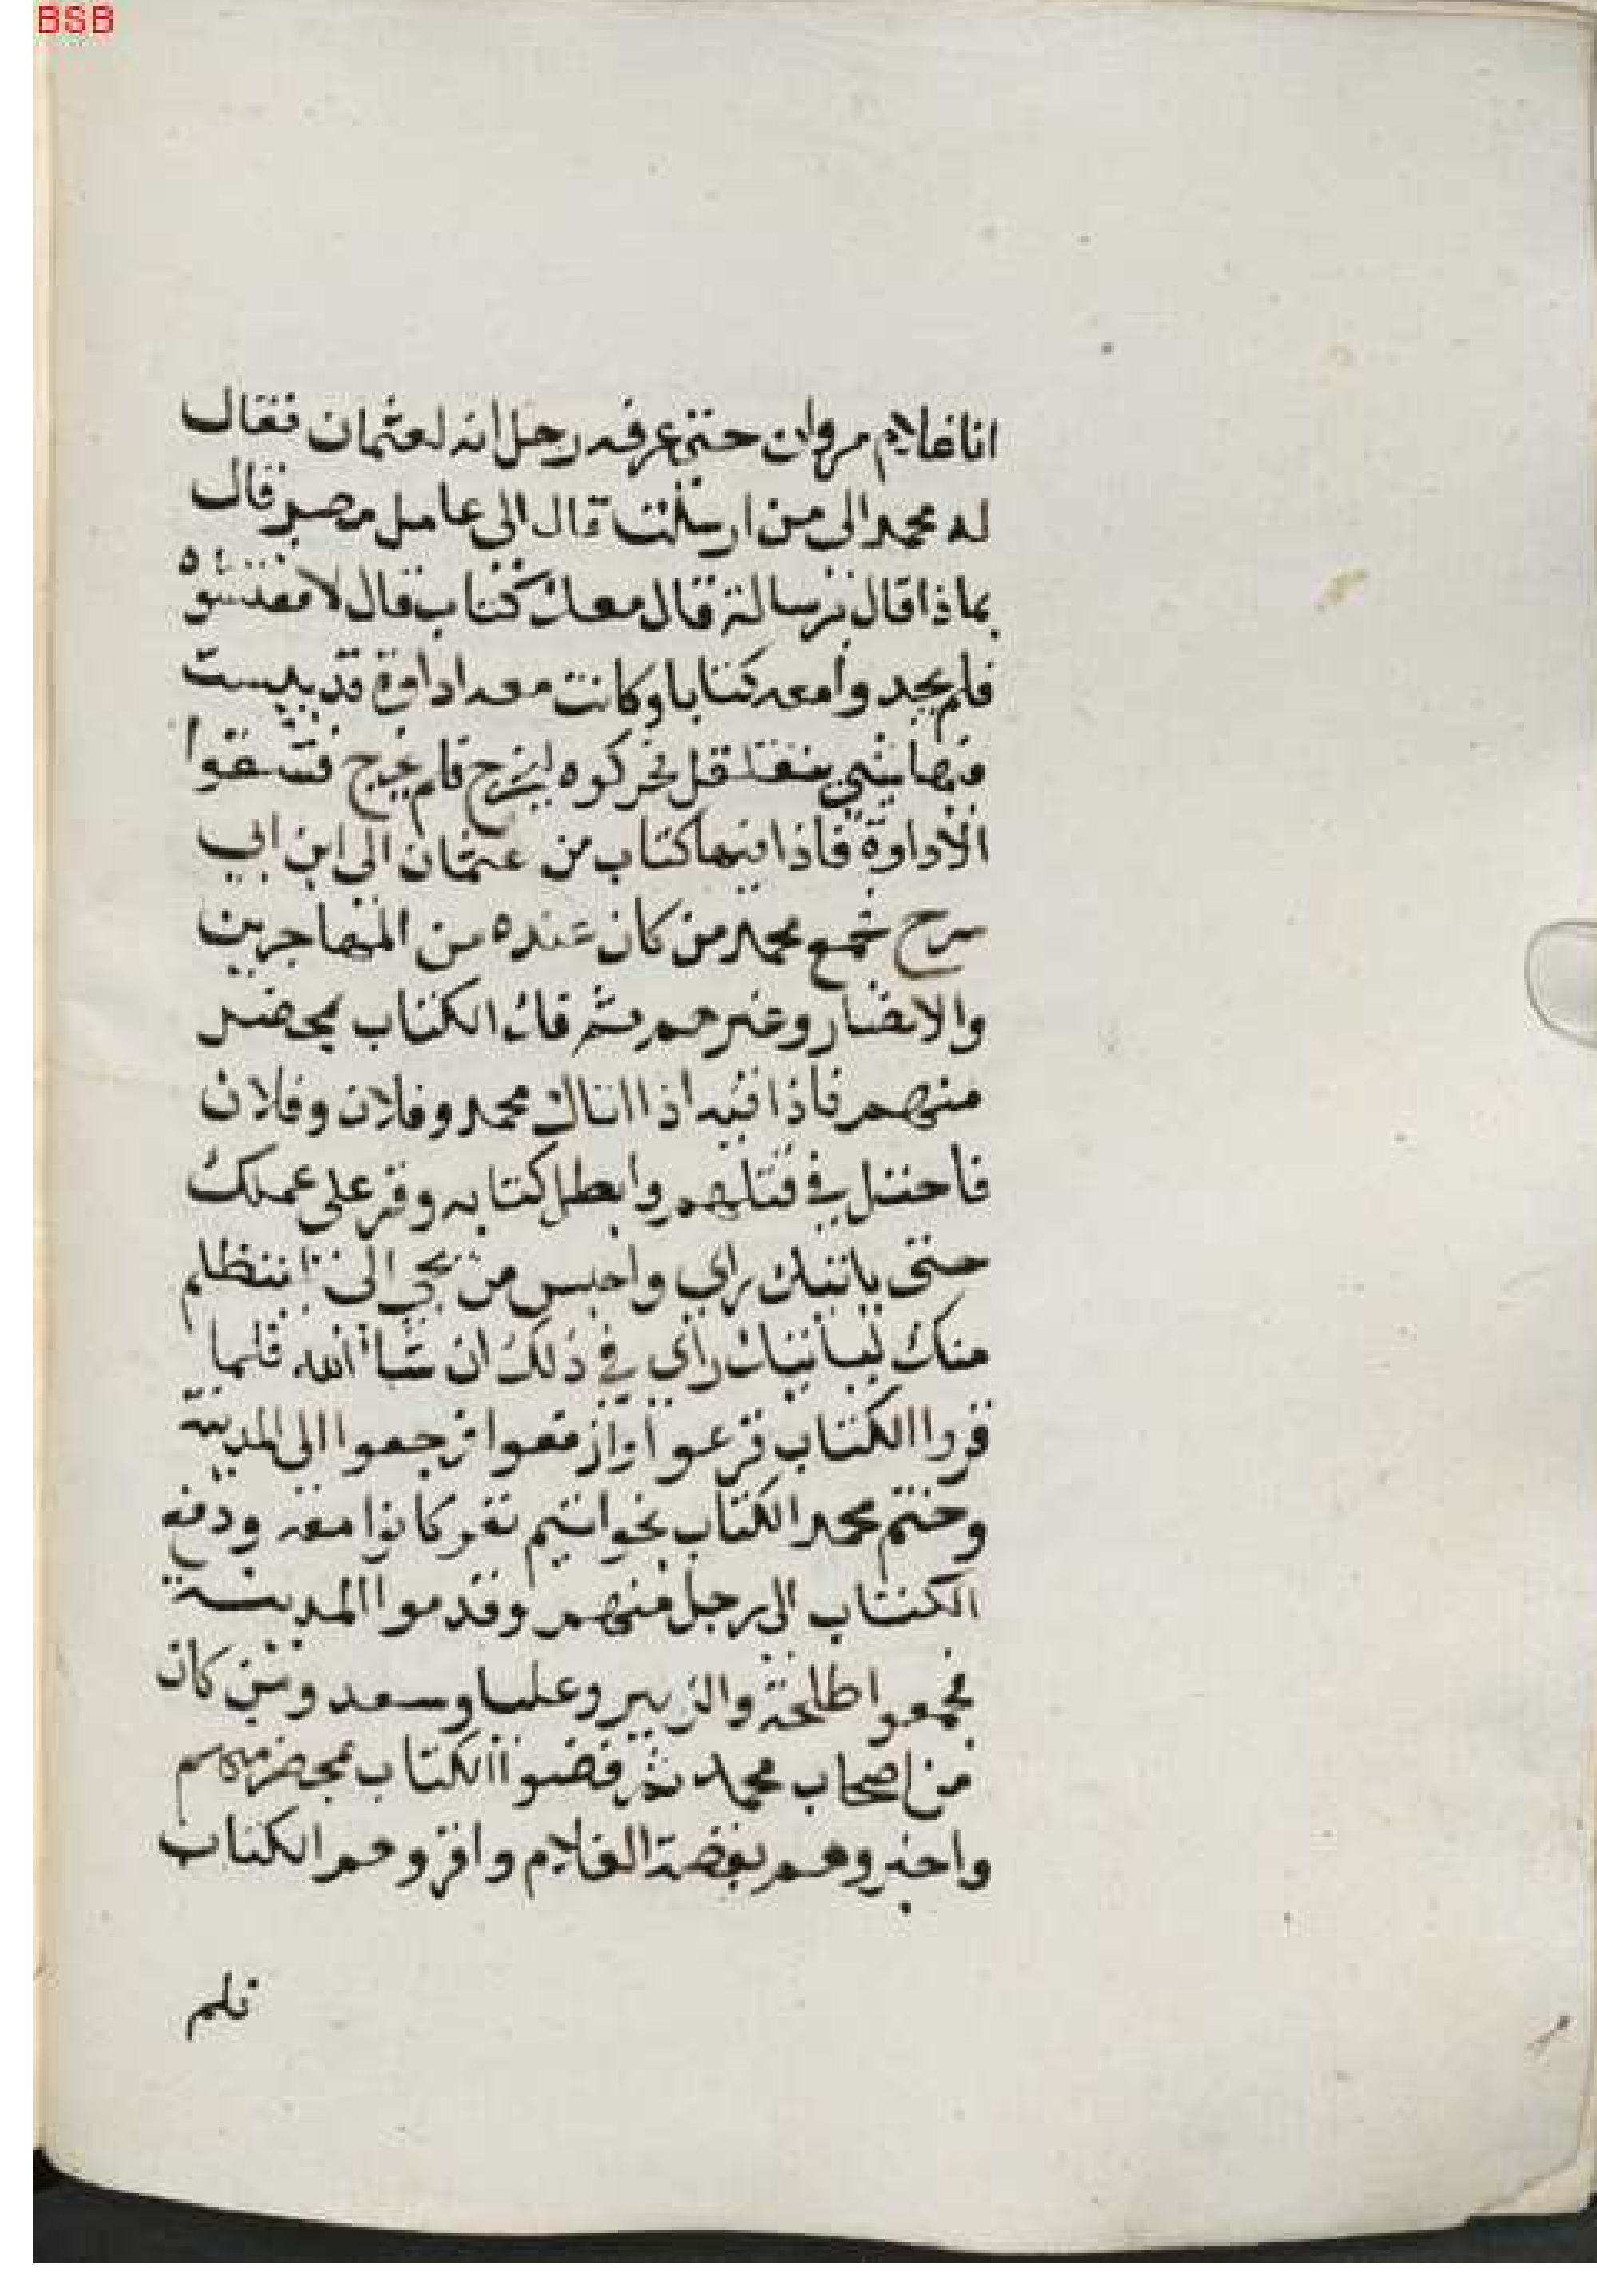 BSB
انا غلام مروان حتى عرفه رجل انه لعثمان فقال
له محمد الى من ارسلت قال الى عامل مصر قال
بماذا قال برسالة قال معك كتاب قال لا ففتشوه
فلم يجدوا معه كتابا وكانت معه اداوة قد يبست
فيها شي يتقلقل فحركوه ليخرج فلم يخرج فشقوا
الاداوة فاذا فيها كتاب من عثمان الى ابن ابي
سرح فجمع محمد من كان عنده من المهاجرين
والانصار وغيرهم ثم فك الكتاب بمحضر
منهم فاذا فيه اذا اتاك محمد وفلان وفلان
فاحتل في قتلهم وابطل كتابه وقر على عملك
حتى ياتيك راي واحبس من يجي الي يتظلم
منك لياتيك راي في ذلك ان شاء الله فلما
قروا الكتاب فزعوا وازمعوا فرجعوا الى المدينة
وختم محمد الكتاب بخواتيم نفر كانوا معه ودفع
الكتاب الى رجل منهم وقدموا المدينة
فجمعوا طلحة والزبير وعليا وسعد ومن كان
من اصحاب محمد ثم فضوا الكتاب بمحضر منهم
واخبروهم بقصة الغلام واقروهم الكتاب
فلم